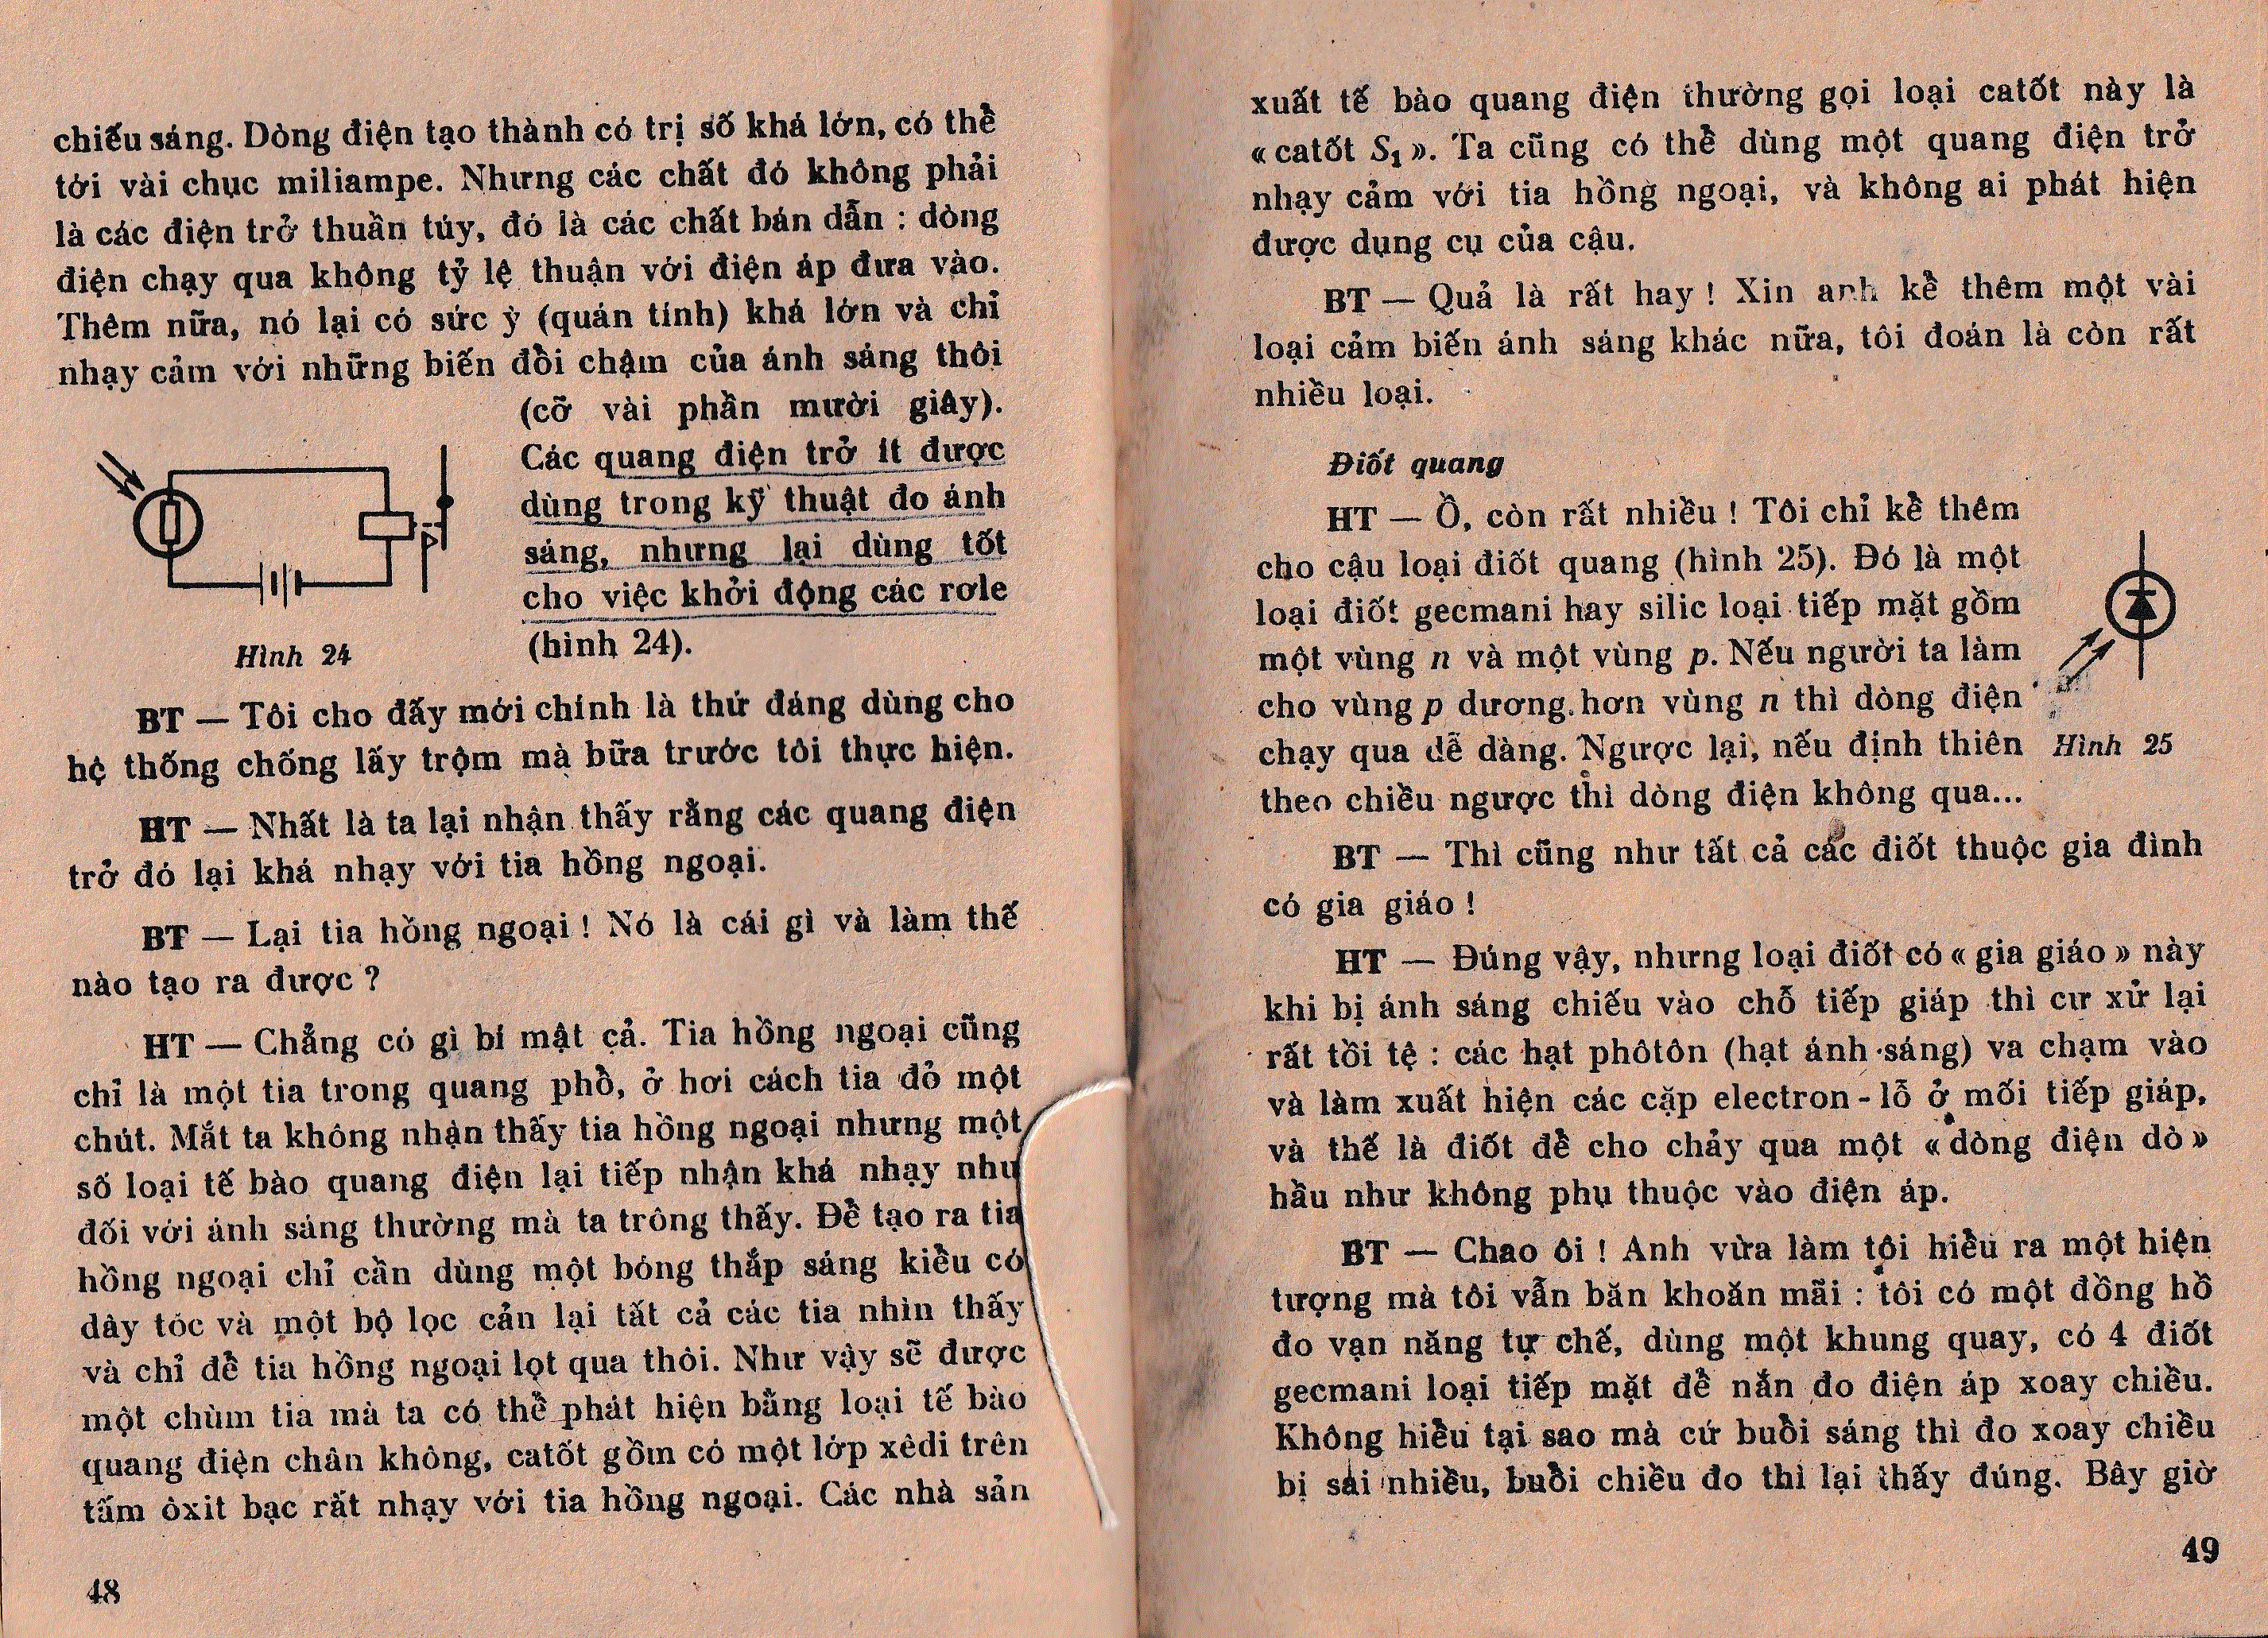 chiếu sáng. Dòng điện tạo thành có trị số khá lớn, có thể
tới vài chục miliampe. Nhưng các chất đó không phải
là các điện trở thuần túy, đó là các chất bán dẫn : dòng
điện chạy qua không tỷ lệ thuận với điện áp đưa vào.
Thêm nữa, nó lại có sức ỳ (quán tính) khá lớn và chỉ
nhạy cảm với những biến đổi chậm của ánh sáng thôi
(cỡ vài phần mười giây).
Các quang điện trở ít được
dùng trong kỹ thuật đo ánh
sáng, nhưng lại dùng tốt
cho việc khởi động các rơle
(hình 24).
Hình 24
BT — Tôi cho đấy mới chính là thứ đáng dùng cho
hệ thống chống lấy trộm mà bữa trước tôi thực hiện.
HT — Nhất là ta lại nhận thấy rằng các quang điện
trở đó lại khá nhạy với tia hồng ngoại.
BT — Lại tia hồng ngoại ! Nó là cái gì và làm thế
nào tạo ra được ?
HT — Chẳng có gì bí mật cả. Tia hồng ngoại cũng
chỉ là một tia trong quang phổ, ở hơi cách tia đỏ một
chút. Mắt ta không nhận thấy tia hồng ngoại nhưng một
số loại tế bào quang điện lại tiếp nhận khá nhạy như
đối với ánh sáng thường mà ta trông thấy. Để tạo ra tia
hồng ngoại chỉ cần dùng một bóng thắp sáng kiểu có
dây tóc và một bộ lọc cản lại tất cả các tia nhìn thấy
và chỉ để tia hồng ngoại lọt qua thôi. Như vậy sẽ được
một chùm tia mà ta có thể phát hiện bằng loại tế bào
quang điện chân không, catốt gồm có một lớp xêdi trên
tấm ôxit bạc rất nhạy với tia hồng ngoại. Các nhà sản
48
xuất tế bào quang điện thường gọi loại catốt này là
« catốt S₁ ». Ta cũng có thể dùng một quang điện trở
nhạy cảm với tia hồng ngoại, và không ai phát hiện
được dụng cụ của cậu.
BT — Quả là rất hay ! Xin anh kể thêm một vài
loại cảm biến ánh sáng khác nữa, tôi đoán là còn rất
nhiều loại.
Điốt quang
HT — Ồ, còn rất nhiều ! Tôi chỉ kể thêm
cho cậu loại điốt quang (hình 25). Đó là một
loại điốt gecmani hay silic loại tiếp mặt gồm
một vùng n và một vùng p. Nếu người ta làm
cho vùng p dương hơn vùng n thì dòng điện
chạy qua dễ dàng. Ngược lại, nếu định thiên
theo chiều ngược thì dòng điện không qua...
Hình 25
BT — Thì cũng như tất cả các điốt thuộc gia đình
có gia giáo !
HT — Đúng vậy, nhưng loại điốt có « gia giáo » này
khi bị ánh sáng chiếu vào chỗ tiếp giáp thì cư xử lại
rất tồi tệ : các hạt phôtôn (hạt ánh sáng) va chạm vào
và làm xuất hiện các cặp electron - lỗ ở mối tiếp giáp,
và thế là điốt để cho chảy qua một « dòng điện dò »
hầu như không phụ thuộc vào điện áp.
BT — Chao ôi ! Anh vừa làm tôi hiểu ra một hiện
tượng mà tôi vẫn băn khoăn mãi : tôi có một đồng hồ
đo vạn năng tự chế, dùng một khung quay, có 4 điốt
gecmani loại tiếp mặt để nắn đo điện áp xoay chiều.
Không hiểu tại sao mà cứ buổi sáng thì đo xoay chiều
bị sai nhiều, buổi chiều đo thì lại thấy đúng. Bây giờ
49